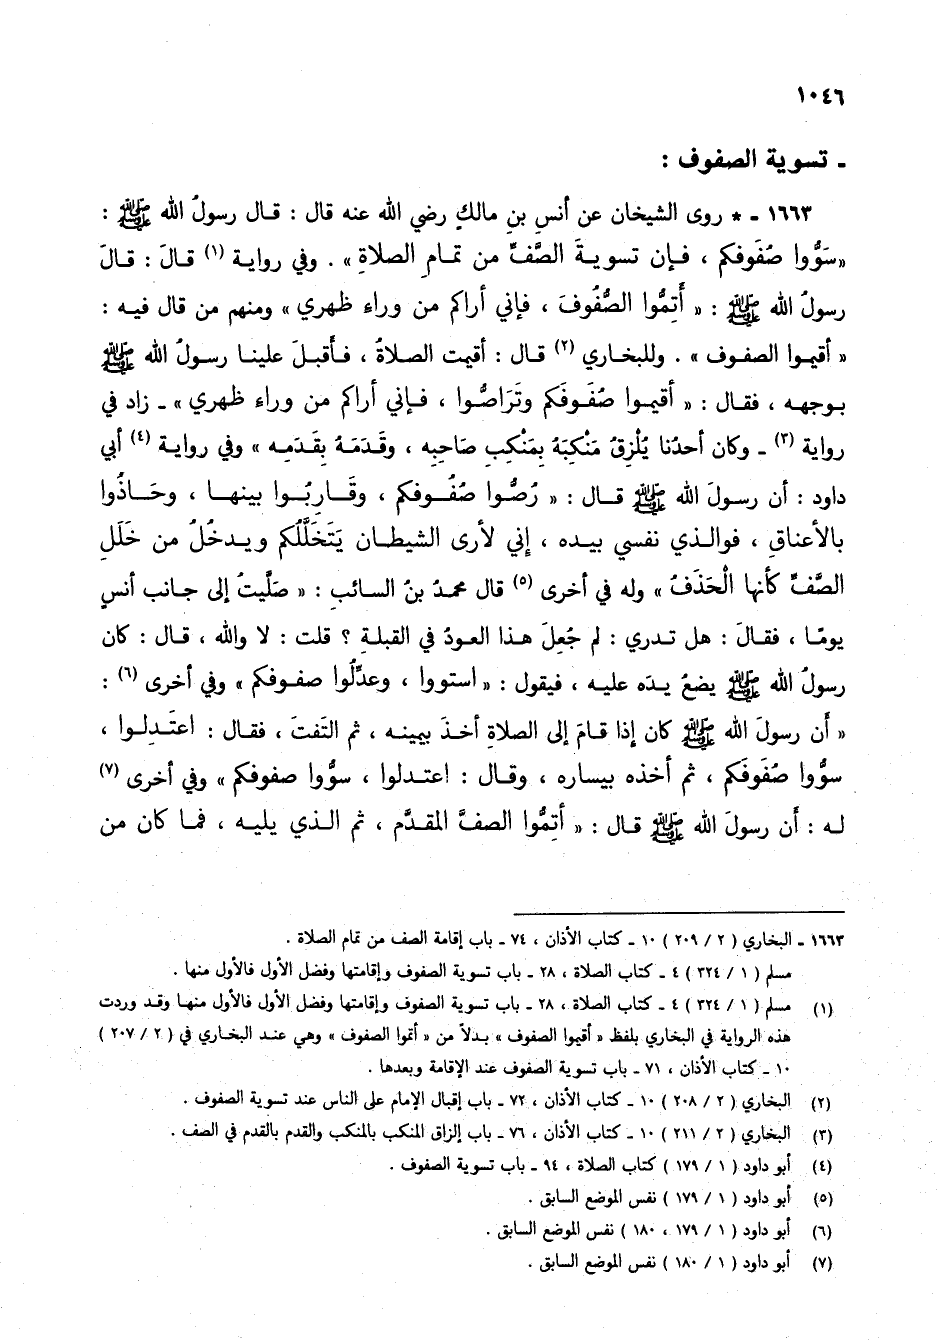 ١٠٤٦
ـ تسوية الصفوف :
١٦٦٣ ـ * روى الشيخان عن أنس بنِ مالكٍ رضي الله عنه قال : قـال رسولُ الله ﷺ :
«سَوُّوا صُفُوفكم ، فـإن تسويـةَ الصَّفِّ من تمـامِ الصلاةِ» . وفي روايـة (١) قـالَ : قـالَ
رسولُ الله ﷺ : « أَتِمُّوا الصُّفُوفَ ، فإني أراكم من وراءِ ظهري» ومنهم من قال فيـه :
« أقيمُوا الصفوف » . وللبخاري (٢) قـال : أقيمت الصـلاةُ ، فـأَقبلَ علينـا رسـولُ الله ﷺ
بـوجهـه ، فقـال : « أقيمُـوا صُفُـوفَكم وتَرَاصُّـوا ، فـإني أراكم من وراءِ ظهري» ـ زاد في
رواية (٣) ـ وكان أحدُنا يُلْزِقُ مَنْكِبَهُ بِمَنْكِبِ صَاحبِه ، وقَـدَمَـهُ بِقَـدَمِـه » وفي روايـة (٤) أبي
داود : أن رسولَ الله ﷺ قـال : « رُصُّوا صُفُـوفكم ، وقَـارِبُـوا بينهـا ، وحَـاذُوا
بالأعناقِ ، فوالـذي نفسي بيـده ، إني لأرى الشيطـان يَتَخَلَّلُكم ويـدخُلُ من خَلَلِ
الصَّفِّ كأنها الْحَذَفُ » وله في أخرى (٥) قال محمدُ بنُ السائبِ : « صَلَّيتُ إلى جـانب أنسٍ
يومًـا ، فقـالَ : هل تـدري : لم جُعِلَ هـذا العودُ في القبلـةِ ؟ قلت : لا والله ، قـال : كان
رسولُ الله ﷺ يضعُ يدَه عليـه ، فيقول : « استووا ، وعدِّلُوا صفـوفكم » وفي أخرى (٦) :
« أن رسولَ الله ﷺ كان إذا قـامَ إلى الصلاةِ أخـذَ بيمينـه ، ثم التَفتَ ، فقـال : اعتَـدِلـوا ،
سوُّوا صُفُوفَكم ، ثم أخذه بيساره ، وقـال : اعتـدلوا ، سوُّوا صفوفكم » وفي أخرى (٧)
لـه : أن رسولَ الله ﷺ قـال : « أتِمُّوا الصفَّ المقدَّم ، ثم الـذي يليـه ، فمـا كان من
١٦٦٣ ـ البخاري ( ٢ / ٢٠٩ ) ١٠ ـ كتاب الأذان ، ٧٤ ـ باب إقامة الصف من تمام الصلاة .
مسلم ( ١ / ٣٢٤ ) ٤ ـ كتاب الصلاة ، ٢٨ ـ باب تسوية الصفوف وإقامتها وفضل الأول فالأول منها .
(١) مسلم ( ١ / ٣٢٤ ) ٤ ـ كتاب الصلاة ، ٢٨ ـ باب تسوية الصفوف وإقامتها وفضل الأول فالأول منهـا وقـد وردت
هذه الرواية في البخاري بلفظ « أقيموا الصفوف » بـدلاً من « أتموا الصفوف » وهي عنـد البخـاري في ( ٢ / ٢٠٧ )
١٠ ـ كتاب الأذان ، ٧١ ـ باب تسوية الصفوف عند الإقامة وبعدها .
(٢) البخاري ( ٢ / ٢٠٨ ) ١٠ ـ كتاب الأذان ، ٧٢ ـ باب إقبال الإمام على الناس عند تسوية الصفوف .
(٣) البخاري ( ٢ / ٢١١ ) ١٠ ـ كتاب الأذان ، ٧٦ ـ باب إلزاق المنكب بالمنكب والقدم بالقدم في الصف .
(٤) أبو داود ( ١ / ١٧٩ ) كتاب الصلاة ، ٩٤ ـ باب تسوية الصفوف .
(٥) أبو داود ( ١ / ١٧٩ ) نفس الموضع السابق .
(٦) أبو داود ( ١ / ١٧٩ ، ١٨٠ ) نفس الموضع السابق .
(٧) أبو داود ( ١ / ١٨٠ ) نفس الموضع السابق .